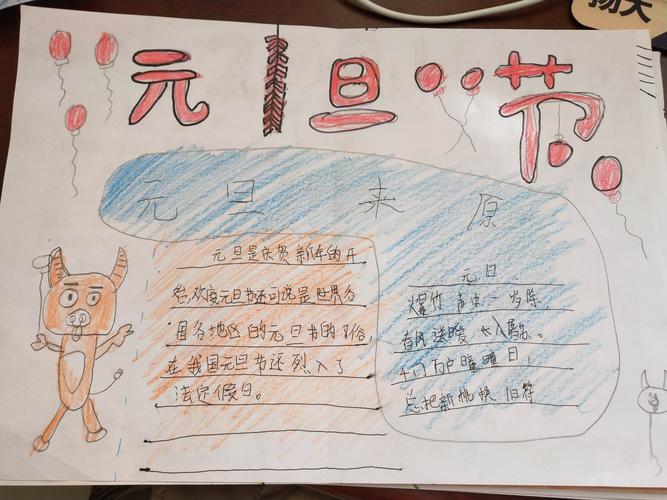 元旦节
元旦来原
元旦是庆贺新年的开
始,欢度元旦节还可说是世界各
国各地区的元旦节的习俗,
在我国元旦节还烈入了
法定假日。
元日
爆竹声中一岁除,
春风送暖入
千门万户瞳瞳日,
总把新桃换旧符